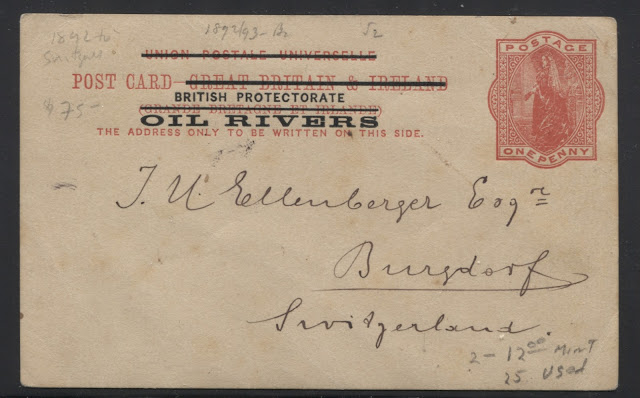 1892 to
1892/93-
UNION POSTALE UNIVERSELLE
POST CARD-GREAT BRITAIN & IRELAND
BRITISH PROTECTORATE
(GRANDE BRETAGNE ET IRLANDE)
OIL RIVERS
THE ADDRESS ONLY TO BE WRITTEN ON THIS SIDE.
$75-
POSTAGE
ONE PENNY
J. U. Ellenberger Esqre
Burgdorf
Switzerland.
2 - 12.00 MINT
25 USed